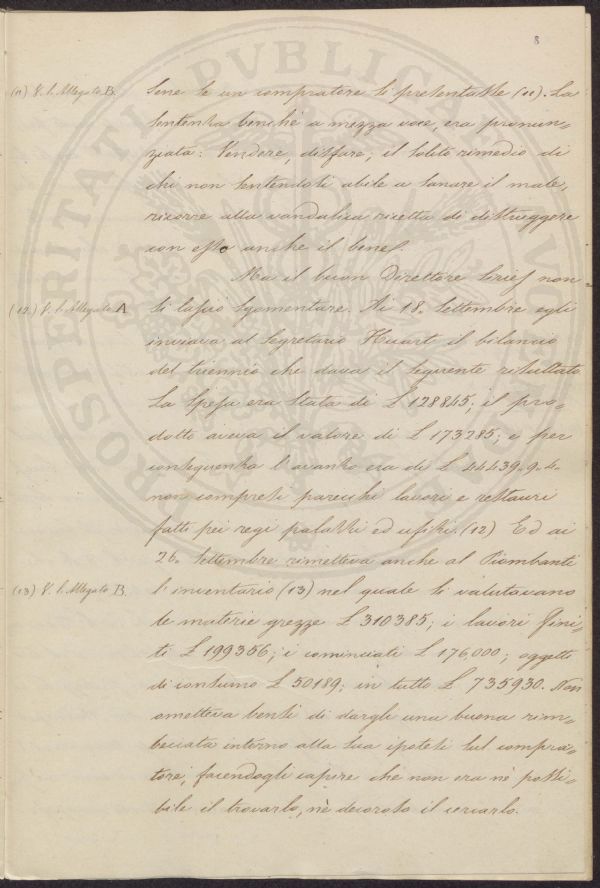 8
(11) V. l. Allegato B.
bene se un compratore si presentasse (11). La
sentenza benchè a mezza voce, era pronun=
ziata: Vendere, disfare; il solito rimedio di
chi non sentendosi abile a sanare il male,
ricorre alla vandalica ricetta di distruggere
con esso anche il bene.
Ma il buon Direttore Siries non
(12) V. l. Allegato A
si lasciò sgomentare. Ai 18. Settembre egli
inviava al Segretario Huart il bilancio
del triennio che dava il seguente risultato
La spesa era stata di £ 128845; il pro=
dotto aveva il valore di £ 173285; e per
conseguenza l'avanzo era di £ 44439.9.4.
non compresi parecchi lavori e restauri
fatti pei regi palazzi ed ufizi. (12) Ed ai
26. Settembre rimetteva anche al Piombanti
(13) V. l. Allegato B.
l'inventario (13) nel quale si valutavano
le materie grezze £ 310385; i lavori fini=
ti £ 199356; i cominciati £ 176,000; oggetti
di consumo £ 50189; in tutto £ 735930. Non
ometteva bensì di dargli una buona rim=
beccata intorno alla sua ipotesi sul compra=
tore, facendogli capire che non era nè possi=
bile il trovarlo, nè decoroso il cercarlo.
PROSPERITATI PVBLICAE